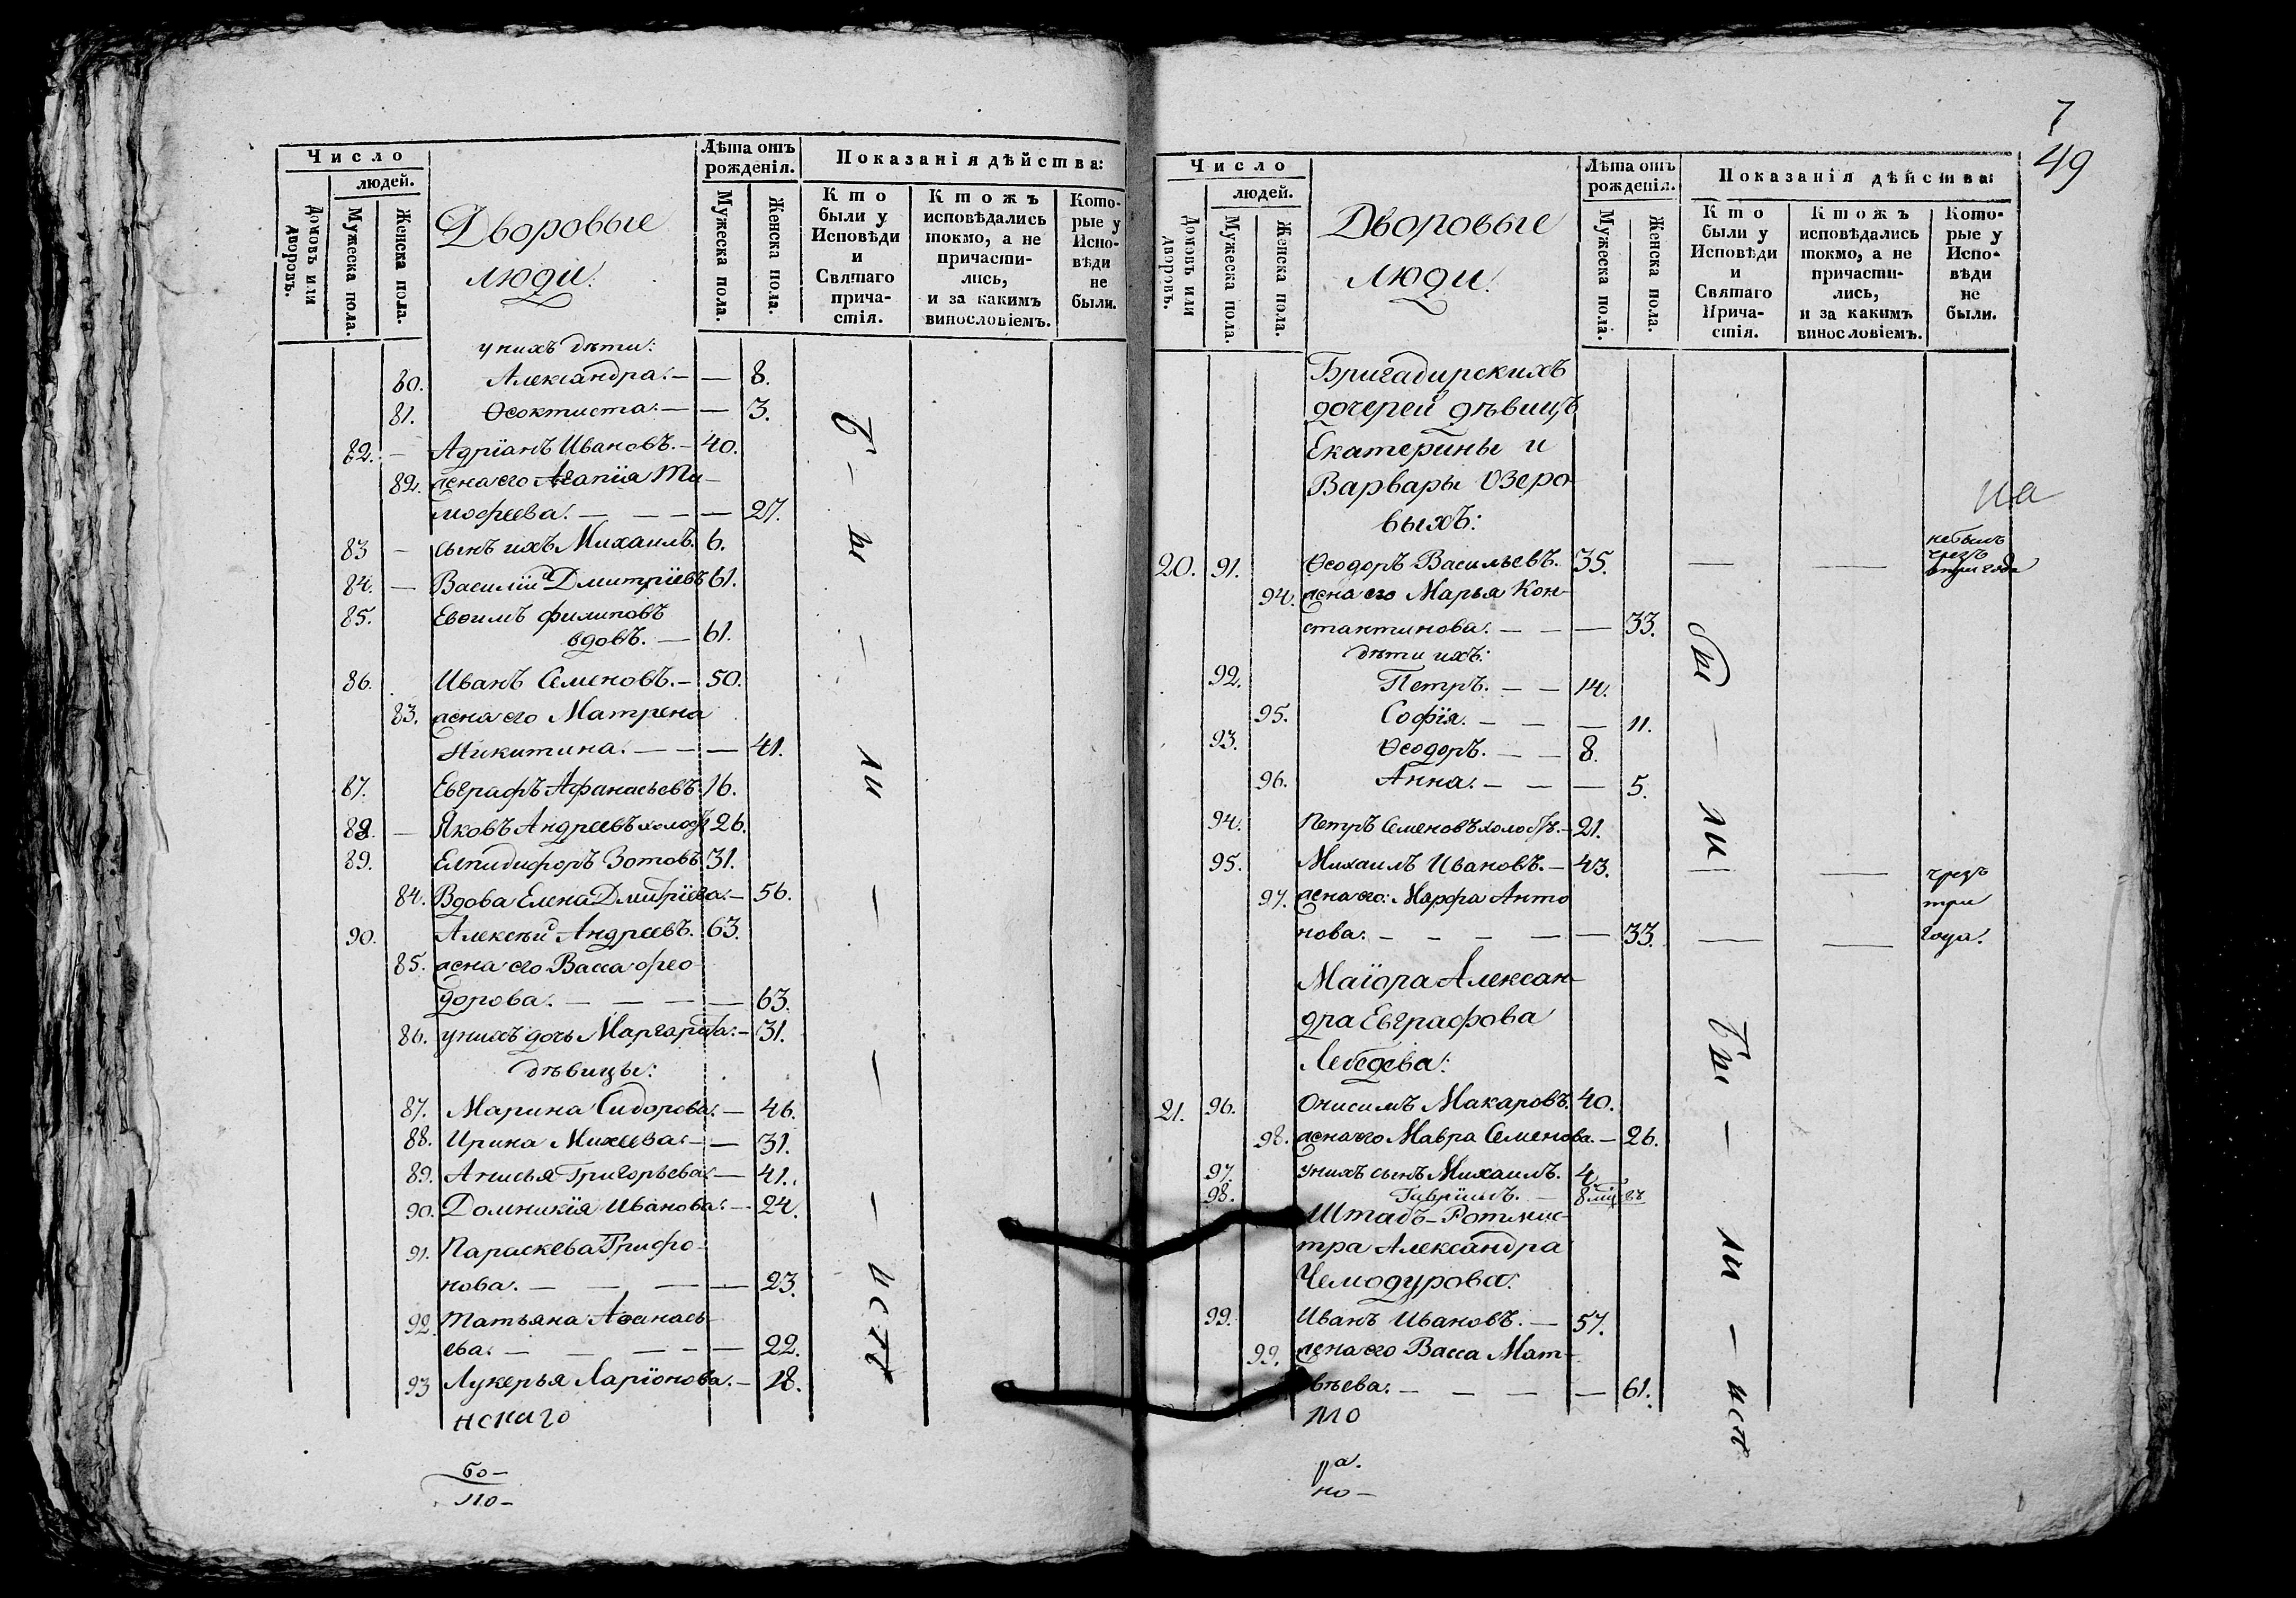 Число
людей.
Домовъ или дворовъ.
Мужеска пола.
Женска пола.
Дворовые
люди.
Лѣта отъ
рожденія.
Мужеска пола.
Женска пола.
Показанія дѣйства:
Кто
были у
Исповѣди
и
Святаго
прича-
стія.
Ктожъ
исповѣдались
токмо, а не
причасти-
лись,
и за какимъ
винословіемъ.
Кото-
рые у
Испо-
вѣди
не
были.
у нихъ дѣти:
80. Александра. — — 8.
81. Ѳеоктиста. — — 3.
82. — Адріанъ Ивановъ. — 40.
82. жена его Агапія Ти-
мофеева. — — — — 27.
83 — сынъ ихъ Михаилъ. 6.
84. — Василій Дмитріевъ 61.
85. Евѳимъ Филиповъ
вдовъ. — 61.
86. Иванъ Семеновъ. — 50.
83. жена его Матрена
Никитина. — — — 41.
87. Евграфъ Афанасьевъ 16.
88. — Яковъ Андреевъ холостъ 26.
89. Елпидифоръ Зотовъ 31.
84. Вдова Елена Дмитріева. — 56.
90. Алексѣй Андреевъ. 63.
85. жена его Васса Фео-
дорова. — — — — 63.
86. у нихъ дочь Маргарита. — 31.
дѣвицы:
87. Марина Сидорова. — 46.
88. Ирина Михеева. — — 31.
89. Анисья Григорьева. — 41.
90. Домникія Иванова. — 24.
91. Параскева Трифо-
нова. — — — — 23.
92. Татьяна Аѳанась-
ева. — — — — — 22.
93 Лукерья Ларіонова. — 18.
б — ы — ли — — — исп
нскаго
бо —
ло —
7
49
Число
людей.
Домовъ или дворовъ.
Мужеска пола.
Женска пола.
Дворовые
люди.
Лѣта отъ
рожденія.
Мужеска пола.
Женска пола.
Показанія дѣйства:
Кто
были у
Исповѣди
и
Святаго
Прича-
стія.
Ктожъ
исповѣдались
токмо, а не
причасти-
лись,
и за какимъ
винословіемъ.
Кото-
рые у
Испо-
вѣди
не
были.
Бригадирскихъ
дочерей дѣвицъ
Екатерины и
Варвары Озеро-
выхъ:
20. 91. Ѳеодоръ Васильевъ. 35. — — небылъ
чрезъ
три года
94. жена его Марья Кон-
стантинова. — — — 33.
дѣти ихъ:
92. Петръ. — — 14.
95. Софія. — — — 11.
93. Ѳеодоръ. — — 8.
96. Анна. — — — 5.
94. Петръ Семеновъ холостъ. — 21.
95. Михаилъ Ивановъ. — 43. — — чрезъ
три
97. жена его: Марфа Анто
нова. — — — — — 33. — — года.
Маіора Алексан-
дра Евграфова
Лебедева:
21. 96. Онисимъ Макаровъ. 40.
98. жена его Мавра Семенова. — 26.
97. у нихъ сынъ Михаилъ. 4.
98. Гавріилъ. — 8 мцовъ
Штабъ-Ротмис-
тра Александра
Чемодурова:
99. Иванъ Ивановъ. — 57.
99. жена его Васса Мат-
вѣева. — — — — 61.
бы — ли
бы — ли — исп
ло
ра.
но —